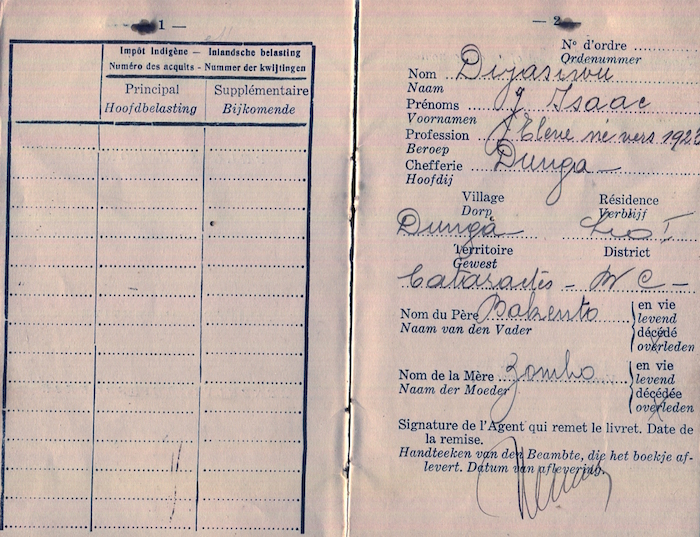 1 —
Impôt Indigène — Inlandsche belasting
Numéro des acquits - Nummer der kwijtingen
Principal
Hoofdbelasting
Supplémentaire
Bijkomende
— 2
N° d'ordre
Ordenummer
Nom
Naam
Prénoms Isaac
Voornamen
Profession Elève né vers 192
Beroep
Chefferie Dunga —
Hoofdij
Village Résidence
Dorp Verblijf
Dunga Leo I
Territoire District
Gewest
Cataractes — M C —
Nom du Père Bakento
Naam van den Vader
en vie
levend
décédé
overleden
Nom de la Mère Zombo
Naam der Moeder
en vie
levend
décédée
overleden
Signature de l'Agent qui remet le livret. Date de
la remise.
Handteeken van den Beambte, die het boekje af-
levert. Datum van aflevering.